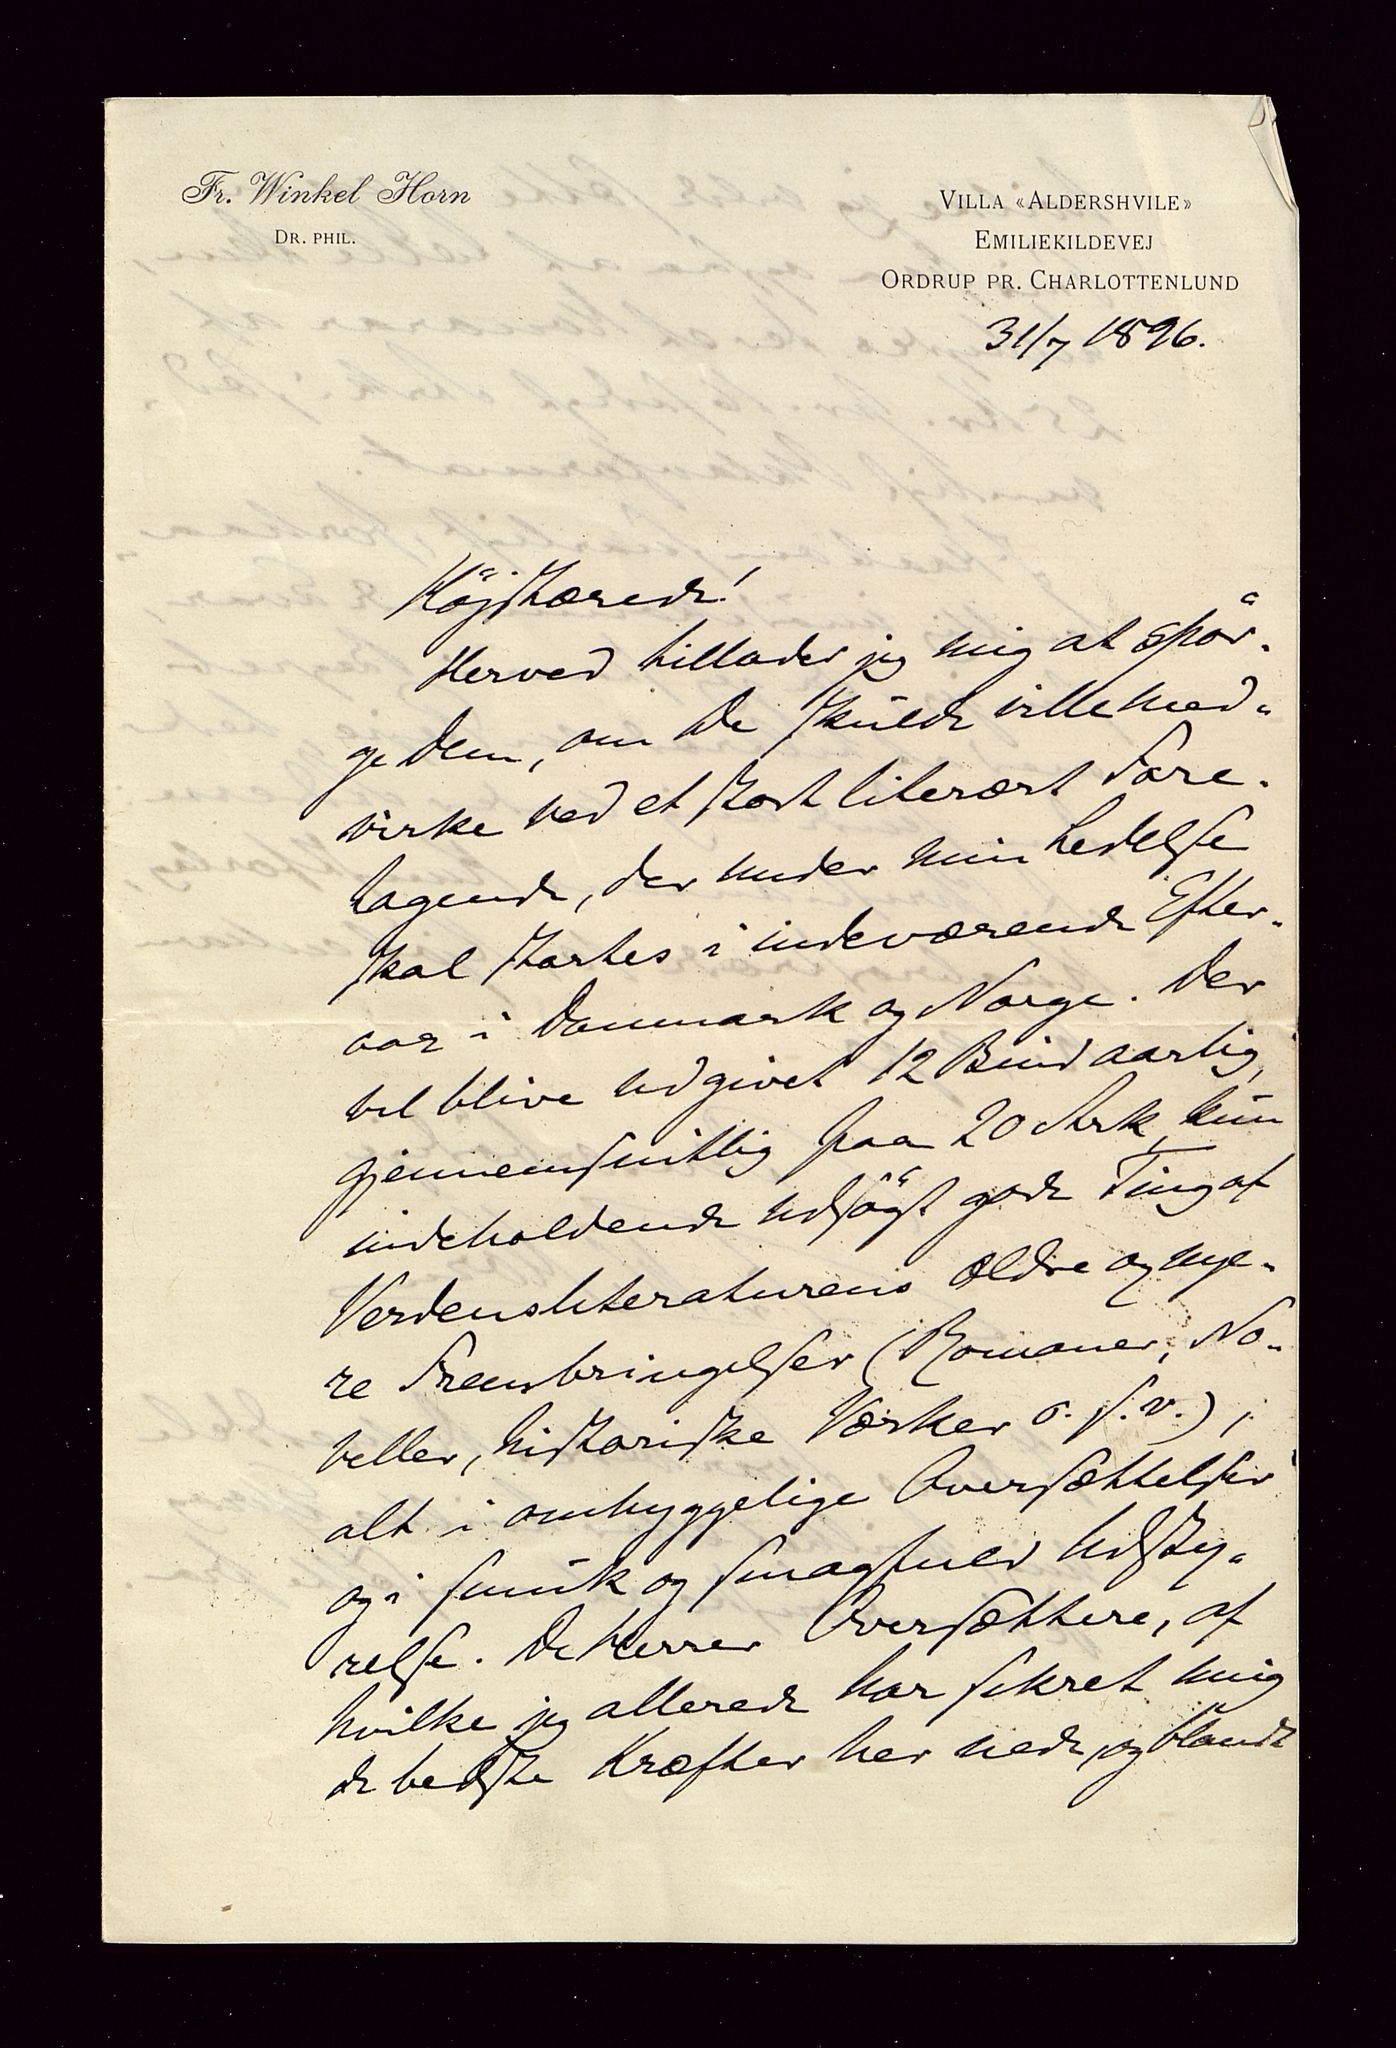 Fr. Winkel Horn
DR. PHIL.
VILLA «ALDERSHVILE»
EMILIEKILDEVEJ
ORDRUP PR. CHARLOTTENLUND
31/7 1896.
Højstærede!
Herved tillader jeg mig at spør-
ge Dem, om De skulde ville med-
virke ved et stort literært Fore-
tagende, der under min Ledelse
skal startes i indeværende Efter-
aar i Danmark og Norge. Der
vil blive udgivet 12 Bind aarlig,
gjennemsnitlig paa 20 Ark, kun
indeholdende udsøgt gode Ting af
Verdensliteraturens ældre og nye-
re Frembringelser (Romaner, No-
veller, historiske Værker o. s. v.),
alt i omhyggelige Oversættelser
og i smuk og smagfuld Udsty-
relse. De Herrer Oversættere, af
hvilke jeg allerede har sikret mig
de bedste Kræfter her nede, og blandt